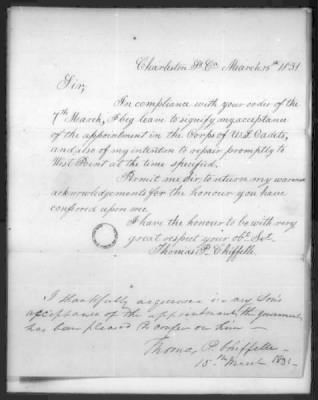 Charleston So. Ca. March 15th 1831
Sir,
In compliance with your order of the
7th March, I beg leave to signify my acceptance
of the appointment in the Corps of U.S. Cadets,
and also of my intention to repair promptly to
West Point at the time specified.
Permit me Sir, to return my warmest
acknowledgements for the honour you have
conferred upon me.
I have the honour to be with very
great respect your Obt. Svt.
Thomas P. Chiffelle.
I thankfully acquiesce in my Son's
acceptance of the appointment the government
has been pleased to confer on him —
Thomas P. Chiffelle
15th March 1831 -